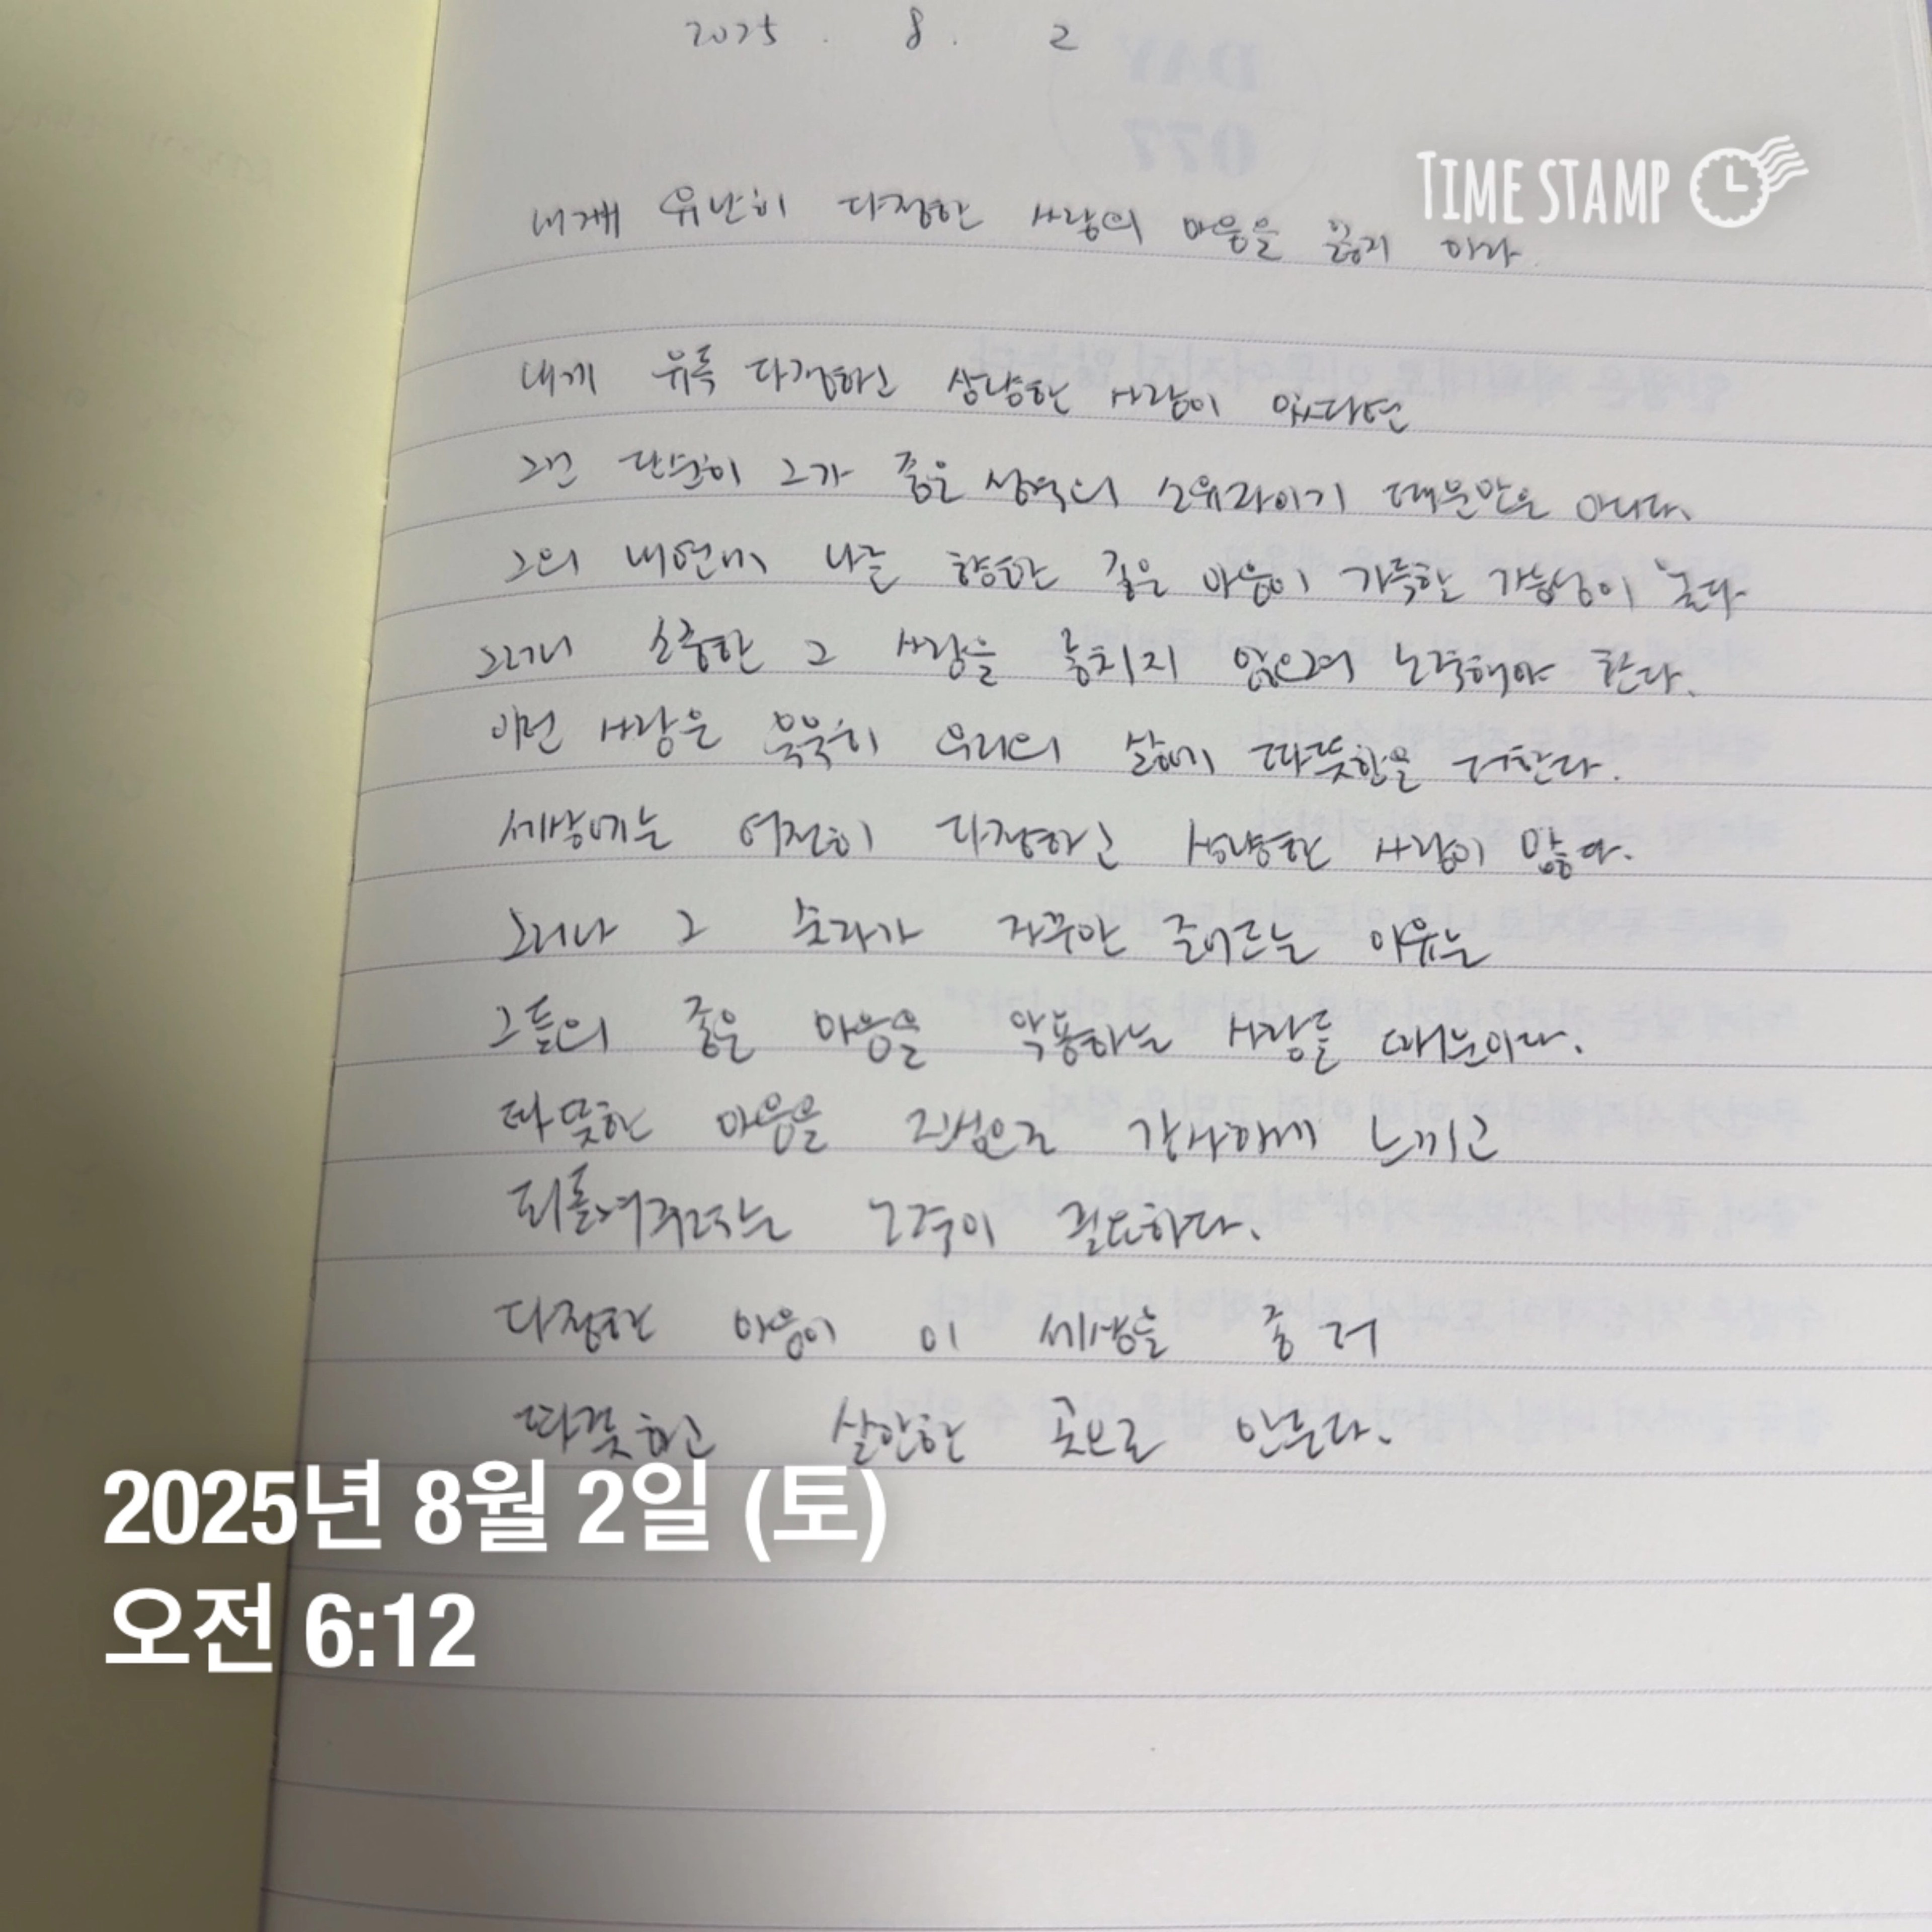 2025. 8. 2
DAY
077
TIME STAMP
내게 유난히 다정한 사람의 마음을 잃지 마라.
내게 유독 다정하고 상냥한 사람이 있다면
그건 단순히 그가 좋은 성격의 소유자이기 때문만은 아니다.
그의 내면에 나를 향한 깊은 마음이 가득할 가능성이 높다
그러니 소중한 그 사람을 놓치지 않으려 노력해야 한다.
이런 사람은 묵묵히 우리의 삶에 따뜻함을 더한다.
세상에는 여전히 다정하고 상냥한 사람이 많다.
그러나 그 숫자가 자꾸만 줄어드는 이유는
그들의 좋은 마음을 악용하는 사람들 때문이다.
따뜻한 마음을 진심으로 감사하게 느끼고
되돌려주려는 노력이 필요하다.
다정한 마음이 이 세상을 좀 더
하고 살만한 곳으로 만든다.
2025년 8월 2일 (토)
오전 6:12